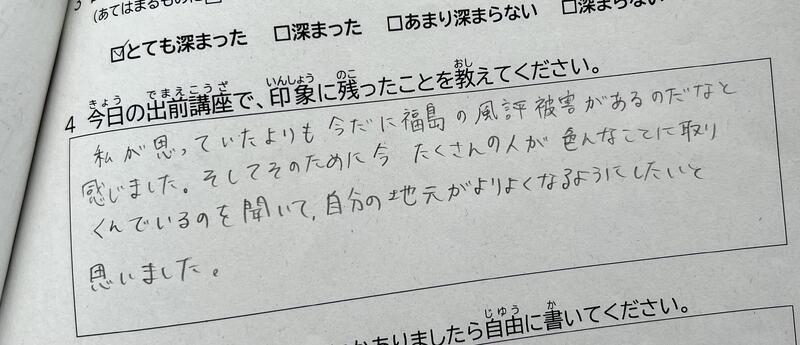 (あてはまるものに□
☑とても深まった □深まった □あまり深まらない □深まらない
4 今日の出前講座で、印象に残ったことを教えてください。
私が思っていたよりも今だに福島の風評被害があるのだなと
感じました。そしてそのために今 たくさんの人が色んなことに取り
くんでいるのを聞いて、自分の地元がよりよくなるようにしたいと
思いました。
ありましたら自由に書いてください。